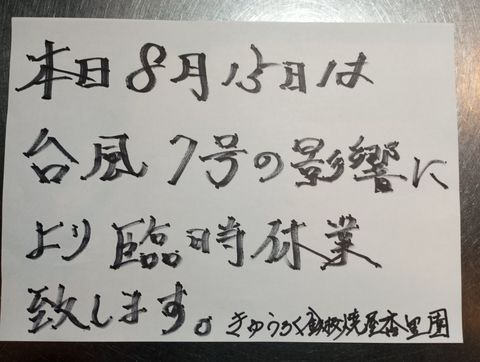 本日8月15日は
台風7号の影響に
より臨時休業
致します。きゅうろく鉄板焼屋香里園